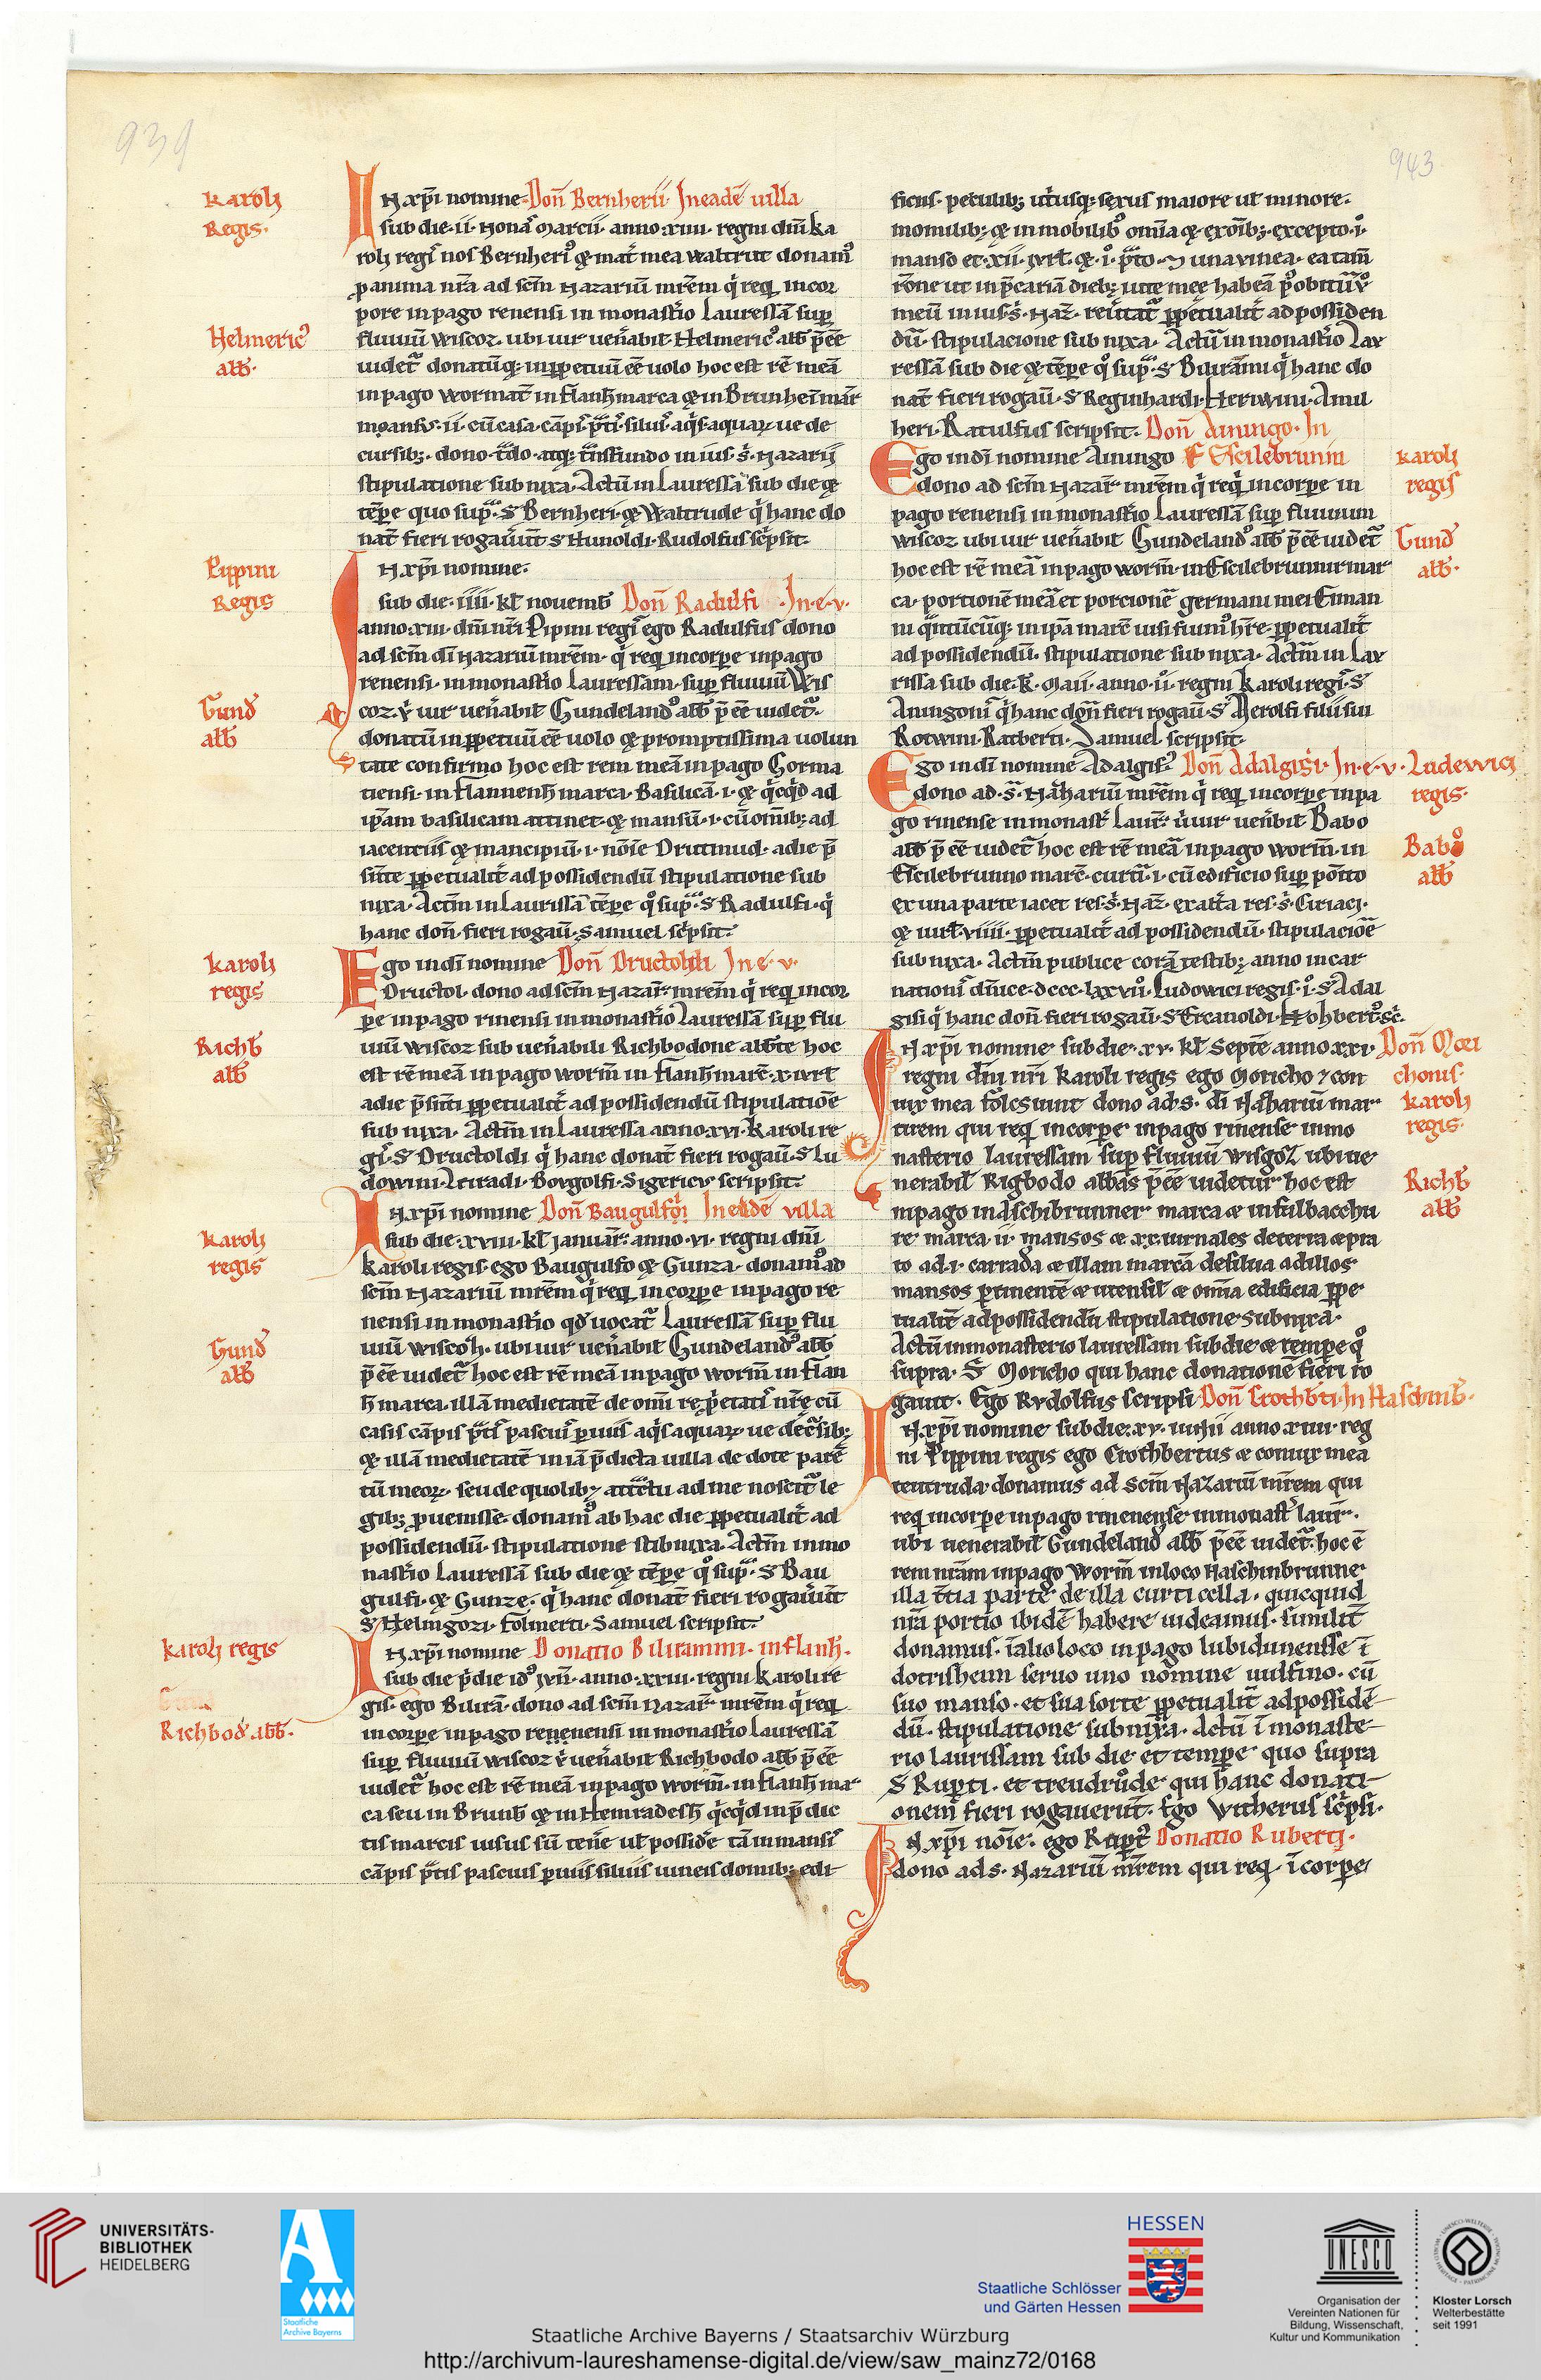 939
943
Karoli
Regis.
Helmeric᾽
abb̄.
Pippini
Regis
Gund̄
abb̄
Karoli
regis
Richb̄
abb̄
Karoli
regis
Gund̄
abb̄
Karoli regis
Richbod̄ abb̄.
IN xp̄i nomine Don̄ Bernherii. In eadē uilla
sub die .ii. Nonas Marcii. anno xiiii. regni dn̄i ka
roli regis nos Bernheri᾽ & mat̄ mea Waltrut donam᾽
p anima nr̄a ad scm̄ Nazariū mr̄em q̇ req̄ incor
pore in pago renensi in monast̄io Lauressā sup̄
fluuiū Wiscoz. ubi uir uen̄abit Helmeric᾽ abb̄ p̄ēē
uidet᷑ donatūq; inppetuū ēē uolo hoc est rē meā
in pago wormat̄ in flanh̄ marca & in Brunheīmar̄
mansus .ii. cū casa cāpis p̄tis siluis aq̇s aquarū ue de
cursib;. dono t̄do atq; t̄nsfundo in ius s̄. Nazarii
stipulatione subnixa. Actū in Lauressā sub die &
tēpe quo sup̄. S Bernheri & Waltrude q̇ hanc do
nat̄ fieri rogauer̄t S Hunoldi. Rudolfus sc̄psit.
IN xp̄i nomine.
sub die .iiii. kl̄ nouemb̄ Don̄ Radulfi. In.e.v.
anno xiii dn̄i nr̄i Pipini regis ego Radulfus dono
ad scm̄ dī Nazariū mr̄em. q̇ req̄ incorpe in pago
renensi. in monast̄io Lauressam. sup̄ fluuiū Wis
coz. v̇ uir uen̄abit Gundeland᾽ abb̄ p̄ēē uidet᷑.
donatū inppetuū ēē uolo & promptissima uolun
tate confirmo hoc est rem meā in pago Gorma
tiensi. in flannenh̄ marca. Basilicā .i. & q̇cq̇d ad
ip̄am basilicam attinet. & mansū .i. cū om̄ib; ad
iacentiis & mancipiū .i. nōie Drutmud. a die p̄
sn̄te ppetualit̄ ad possidendū stipulatione sub
nixa. Actm̄ in Laurissā tēpe q̊ sup̄. S Radulfi. q̇
hanc don̄. fieri rogau̅. Samuel sc̄psit.
Ego in dī nomine Don̄ Dructoldi In.e.v.
Dructol. dono ad scm̄ Nazar̄ mr̄em q̇ req̄ incor
pe in pago rinensi in monast̄io Lauressā sup̄ flu
uiū wiscoz sub uen̄abili Richbodone abb̄te hoc
est rē meā in pago worm̄ in flanh̄ marc̄ .x. iurt
a die p̄sn̄ti ppetualit̄ ad possidendū stipulatiōe
subnixa. Actm̄ in Lauressa anno xvi. Karoli re
gis. S Dructoldi q̇ hanc donat̄ fieri rogau̅. S Lu
dowini. Liuradi. Bougolfi. Sigericus scripsit.
IN xp̄i nomine Don̄ Baugulfi In eadē villa
sub die .xviii. kl̄ januar̄. anno .vi. regni dn̄i
karoli regis. ego Baugulfo & Gunza. donam᾽ ad
scm̄ Nazariū mr̄em q̇ req̄ incorpe in pago re
nensi in monast̄io qd̄ uocat᷑ Lauressā sup̄ flu
uiū wiscoh. ubi uir uen̄abit Gundeland᾽ abb̄
p̄ēē uidet᷑ hoc est rē meā in pago worm̄ in flan
h̄ marca. illā medietatē de omi re p̄etatis nr̄e cū
casis cāpis p̄tis pascuis puiis aq̇s aquarū ue dec̄sib;
& illā medietatē in iā p̄dicta uilla de dote parē
tū meorū. seu de quolib; att̄ctu ad me noscit᷑ le
gib; puenisse. donam᾽ ab hac die ppetualit̄ ad
possidendū. stipulatione subnixa. Actm̄ in mo
nast̄io Lauressā sub die & tēpe q̊ sup̄. S Bau
gulfi. & Gunze. q̇ hanc donat̄ fieri rogauer̄t
S Helmgozi. folmerti. Samuel scripsit.
IN xp̄i nomine Donatio Bilirammi. in flanh̄.
sub die p̄die id᾽ jvn̄. anno .xxiii. regni karoli re
gis. ego Bilirā. dono ad scm̄ Nazar̄ mr̄em q̇ req̄
in corpe in pago renenensi in monast̄io Lauressā
sup̄ fluuiū wiscoz v̇ uen̄abit Richbodo abb̄ p̄ēē
uidet᷑ hoc est rē meā in pago worm̄. in flanh̄ mar
ca seu in Brunh̄ & in Hemradesh̄ q̇cq̇d in p̄dic
tis marcis uisus sū ten̄e ut̄ possid̄e tā in mansis
cāpis p̄tis pascuis puiis siluis uineis domib; edi
ficiis. peculiib; utiusq; sexus maiore ut̄ minore.
momilib; & inmobilib᾽ omia & ex oīb;. excepto .i.
manso et .xii. jvrt̄. & .i. p̄to. 7 una vinea. ea tam̄
rōne ut in p̄cariā dieb; uite mee habeā p᾽ obitū v̊
meū in ius s̄. Naz̄. reūtat᷑ ppetualit̄ ad possiden
dū. stipulacione subnixa. Actū in monast̄io Lau
ressā sub die & tēpe q̊ sup̄. S Bilirāmi q̇ hanc do
nat̄ fieri rogau̅. S Reginhardi. Heriwini. Amul
heri. Ratulfus scripsit. Don̄ Aningo. In
Ego in dī nomine Aningo Escilebrunin
dono ad scm̄ Nazar̄ mr̄em q̇ req̇ incorpe in
pago renensi in monast̄io Lauressā sup̄ fluuium
wiscoz ubi uir uen̄abit Gundeland᾽ abb̄ p̄ēē uidet᷑
hoc est rē meā in pago worm̄. in Escilebrunnir mar
ca. portionē meā et porcionē germani mei Eiman
ni q̄ntūcūq; in ip̄a marc̄ uisi fuim᾽ h̄re. ppetualit̄
ad possidendū. stipulatione subnixa. Actm̄ in Lau
rissa sub die .k̄. Maii. anno .ii. regni karoli regis. S
Aningonis q̇ hanc don̄ fieri rogau̅. S Herolfi filii sui
Rotwini. Ratberti. Samuel scripsit.
Ego in dī nomine Adalgis᾽ Don̄ Adalgisi. In.e.v.
dono ad .s̄. Nazharium mr̄em q̇ req̄ incorpe in pa
go rinense in monast̄ Laur̄. u̇ uir uen̄bit Babo
abb̄ p̄ēē uidet᷑ hoc est rē meā in pago worm̄. in
Escilebrunno marc̄. curtā .i. cū edificio sup̄ pōito
ex una parte iacet res .s̄. Naz̄. ex alt̄a res .s̄. Ciriaci.
& iurt̄ .viiii. ppetualit̄ ad possidendū. stipulaciōe
subnixa. Actm̄ publice corā testib; anno incar
nationis dn̄ice .dccc.lxxvii. Ludowici regis .i. S Adal
gisi q̇ hanc don̄ fieri rogau̅. S Ercanoldi. Hohbert᾽ sc̄.
IN xp̄i nomine sub die .xv. kl̄ Septē anno xxi. Don̄ Mori
regni dn̄i nr̄i karoli regis ego Moricho 7 con
iux mea folcsuint dono ad .s. dī Nazharium mar
tirem qui req̄ incorpe in pago rinense in mo
nasterio lauressam sup̄ fluuiū wisgoz ubi ue
nerabil̄ Rigbodo abbas p̄ēē uidetur hoc est
in pago in aschibrunner marca & in fulbacchu
re marca .ii. mansos & .xc. iurnales de terra & pra
to ad .i. carrada & illam marcā de silua ad illos
mansos ptinentē & utensil̄ & omīa edificia ppe
tualit̄ ad possidendū stipulatione subnixa.
Actū in monasterio lauressam sub die & tempe q̊
supra. S Moricho qui hanc donationē fieri ro
gauit. Ego Rvdolfus scripsi Don̄ Crothb̄ti. In Haschinb̄.
IN xp̄i nomine sub die .xv. iunii anno xiiii. reg
ni Pippini regis ego Crothbertus & coniux mea
teutruda donamus ad Scm̄ Nazarium mr̄em qui
req̄ incorpe in pago rinenense in monast̄ laur̄.
ubi uenerabil̄ Gundeland᾽ abb̄ p̄ēē uidet᷑. hoc ē
rem nr̄am in pago worm̄ in loco Haschinbrunne
illa t̄tia parte de illa curticella. quicquid
nr̄a portio ibidē habere uideamus. similit̄
donamus. ī alio loco in pago lubidunensse ī
dotrisheim seruo uno nomine uulfino. cū
suo manso. et sua sorte ppetualit̄ ad possidē
dū. stipulatione subnixa. Actū ī monaste
rio laurissam sub die et tempe quo supra
S Rupti. et treudrude qui hanc donati
onem fieri rogauerūt. Ego Witherus sc̄psi.
IN xp̄i nōie. ego Rupt᾽ Donatio Ruberti.
dono ad .s. Nazariū mr̄em qui req̄ ī corpe
karoli
regis
Gund̄
abb̄.
Ludewici
regis.
Babo
abb̄
chonis
karoli
regis.
Richb̄
abb̄
UNIVERSITÄTS-
BIBLIOTHEK
HEIDELBERG
Staatliche
Archive Bayerns
HESSEN
Staatliche Schlösser
und Gärten Hessen
UNESCO
Organisation der
Vereinten Nationen für
Bildung, Wissenschaft,
Kultur und Kommunikation
Kloster Lorsch
Welterbestätte
seit 1991
Staatliche Archive Bayerns / Staatsarchiv Würzburg
http://archivum-laureshamense-digital.de/view/saw_mainz72/0168